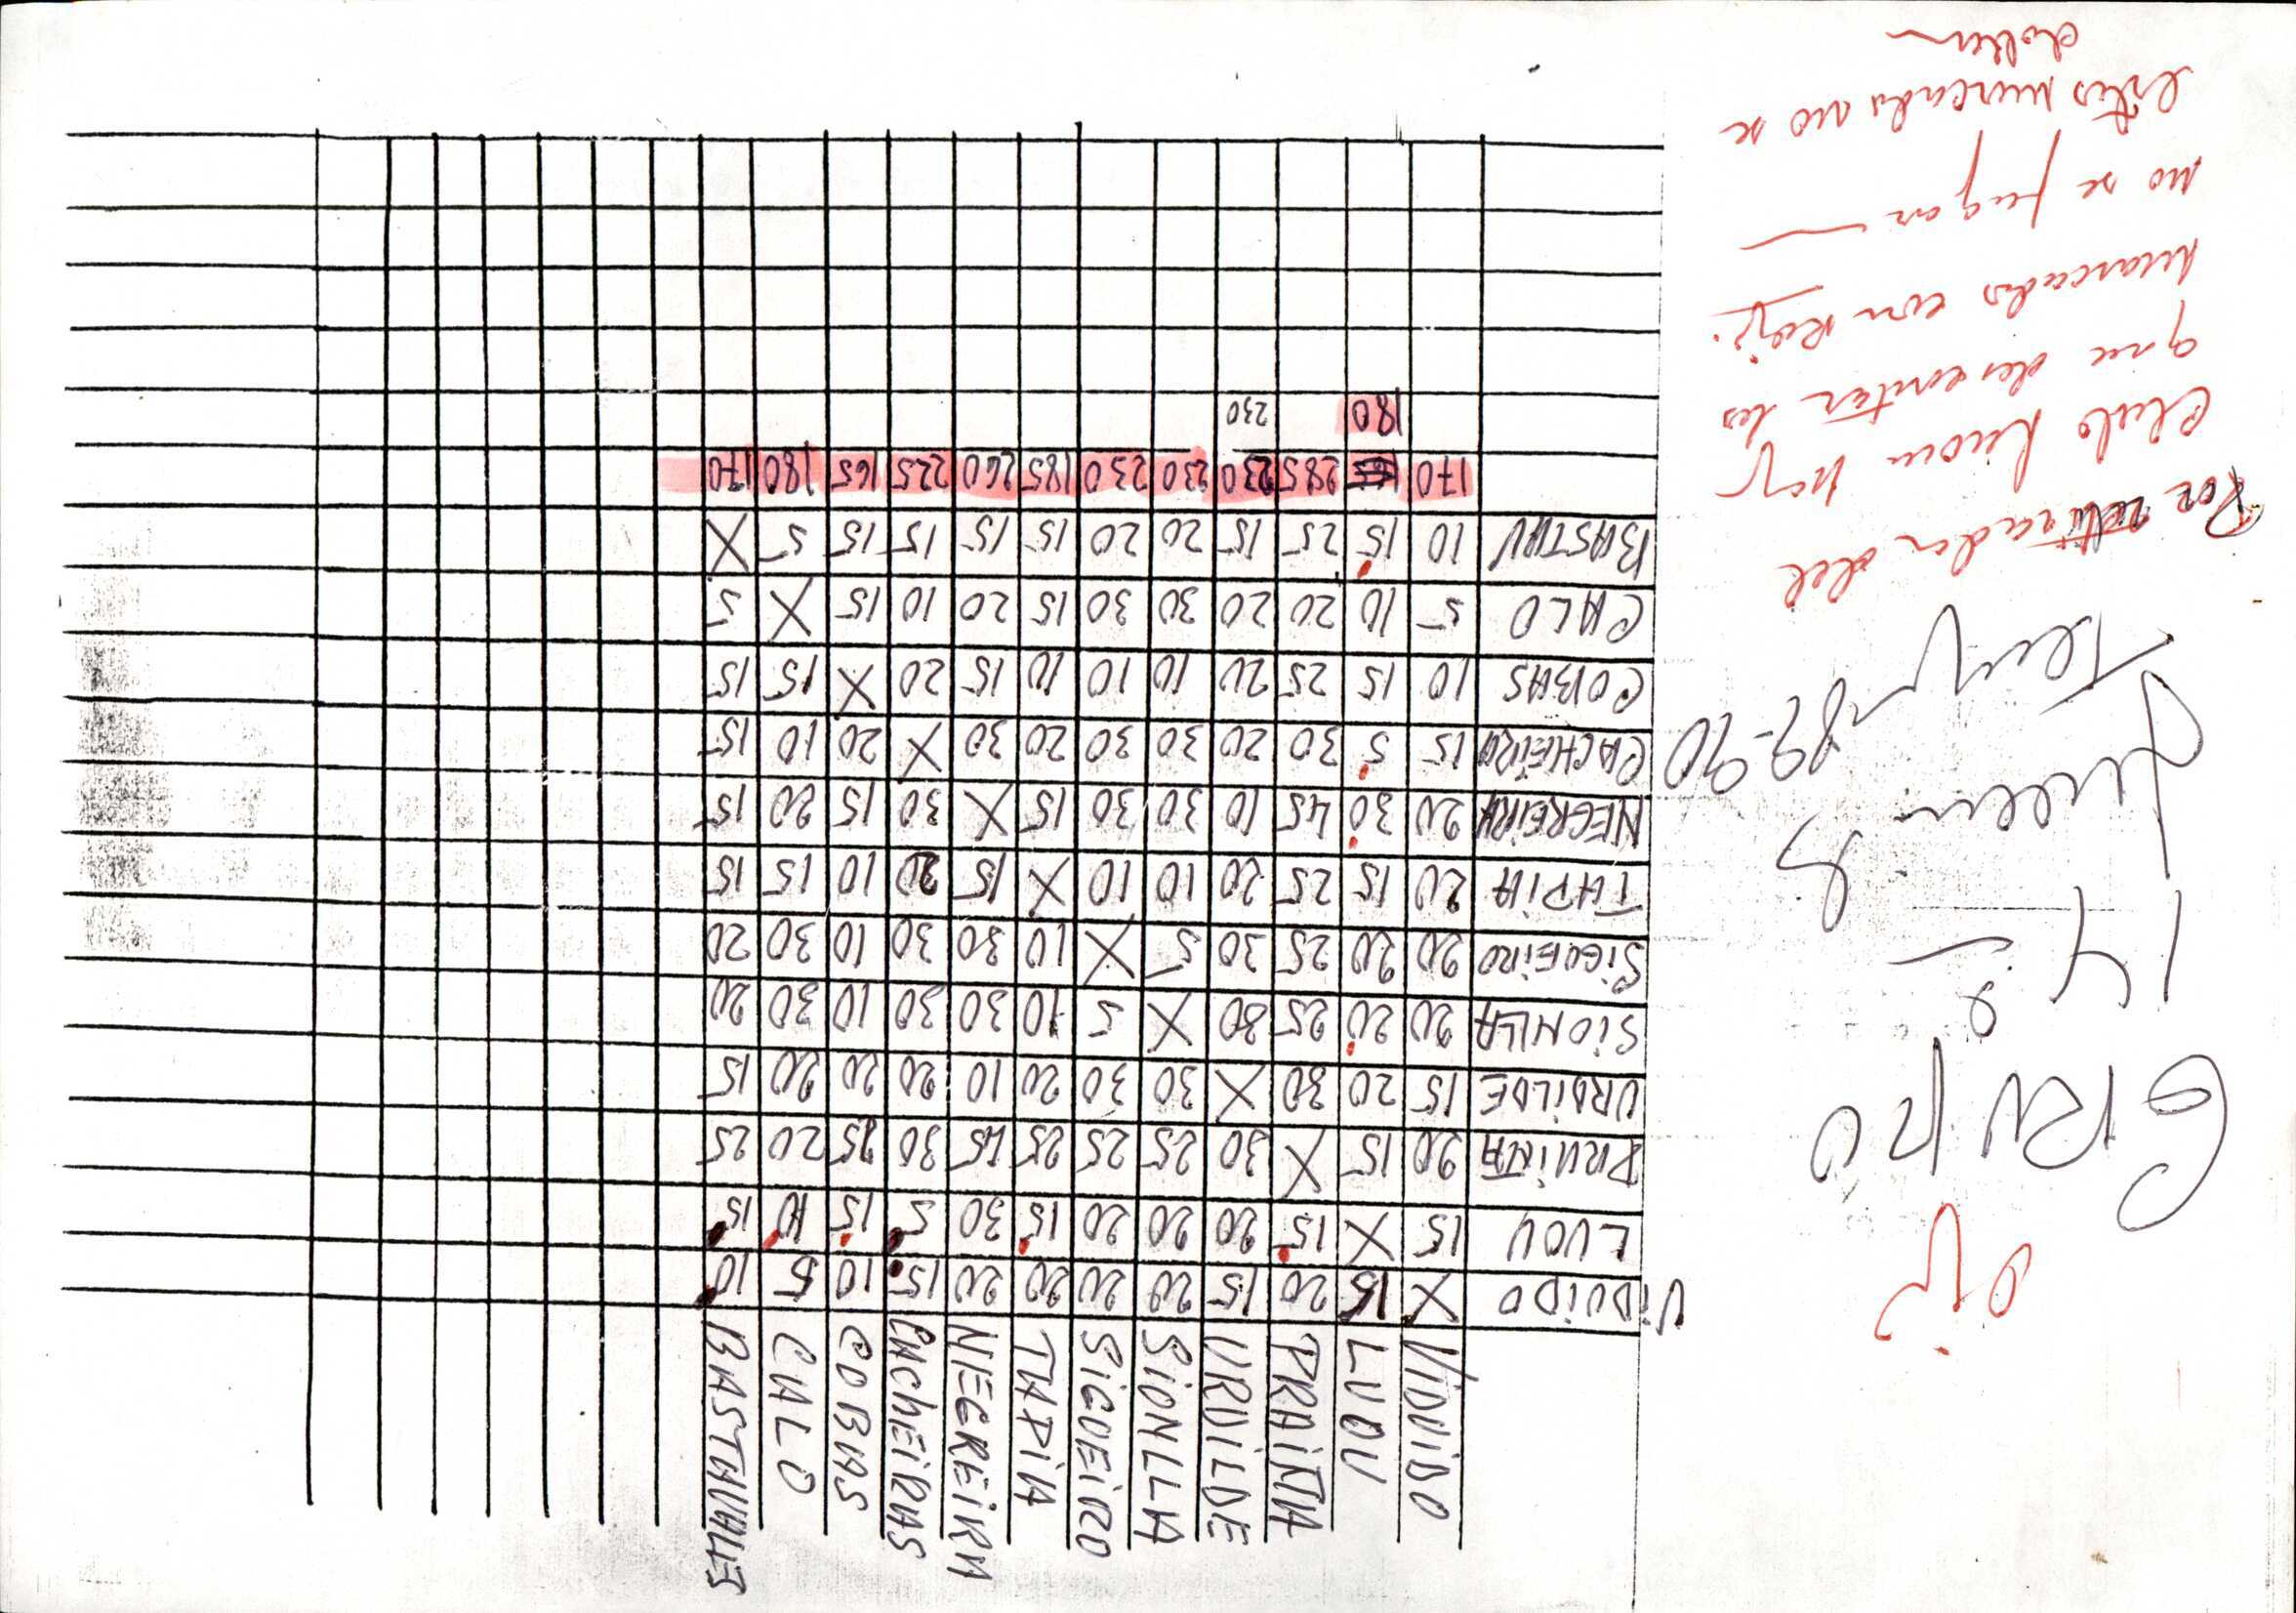 ojo
GRUPO
14 2ª
Juven
Temp 89-90
Por retirada del
Club Luou hay
que descontar los
marcados con Rojo.
no se jugan
estos marcados no se
VIDUIDO LUOU PRAINTA URDILDE SIONLLA SIGUEIRO TAPIA NEGREIRA CACHEIRAS COBAS CALO BASTAVALES
VIDUIDO X 15 20 15 20 20 20 20 15 10 5 10
LUOU 15 X 15 20 20 20 15 30 5 15 10 15
PRAINTA 20 15 X 30 25 25 25 45 30 25 20 25
URDILDE 15 20 30 X 30 30 20 10 20 20 20 15
SIONLLA 20 20 25 30 X 5 10 30 30 10 30 20
SIGUEIRO 20 20 25 30 5 X 10 30 30 10 30 20
TAPIA 20 15 25 20 10 10 X 15 20 10 15 15
NEGREIRA 20 30 45 10 30 30 15 X 30 15 20 15
CACHEIRA 15 5 30 20 30 30 20 30 X 20 10 15
COBAS 10 15 25 20 10 10 10 15 20 X 15 15
CALO 5 10 20 20 30 30 15 20 10 15 X 5
BASTAV 10 15 25 15 20 20 15 15 15 15 5 X
170 285 230 230 230 185 260 225 165 180 170
180 230